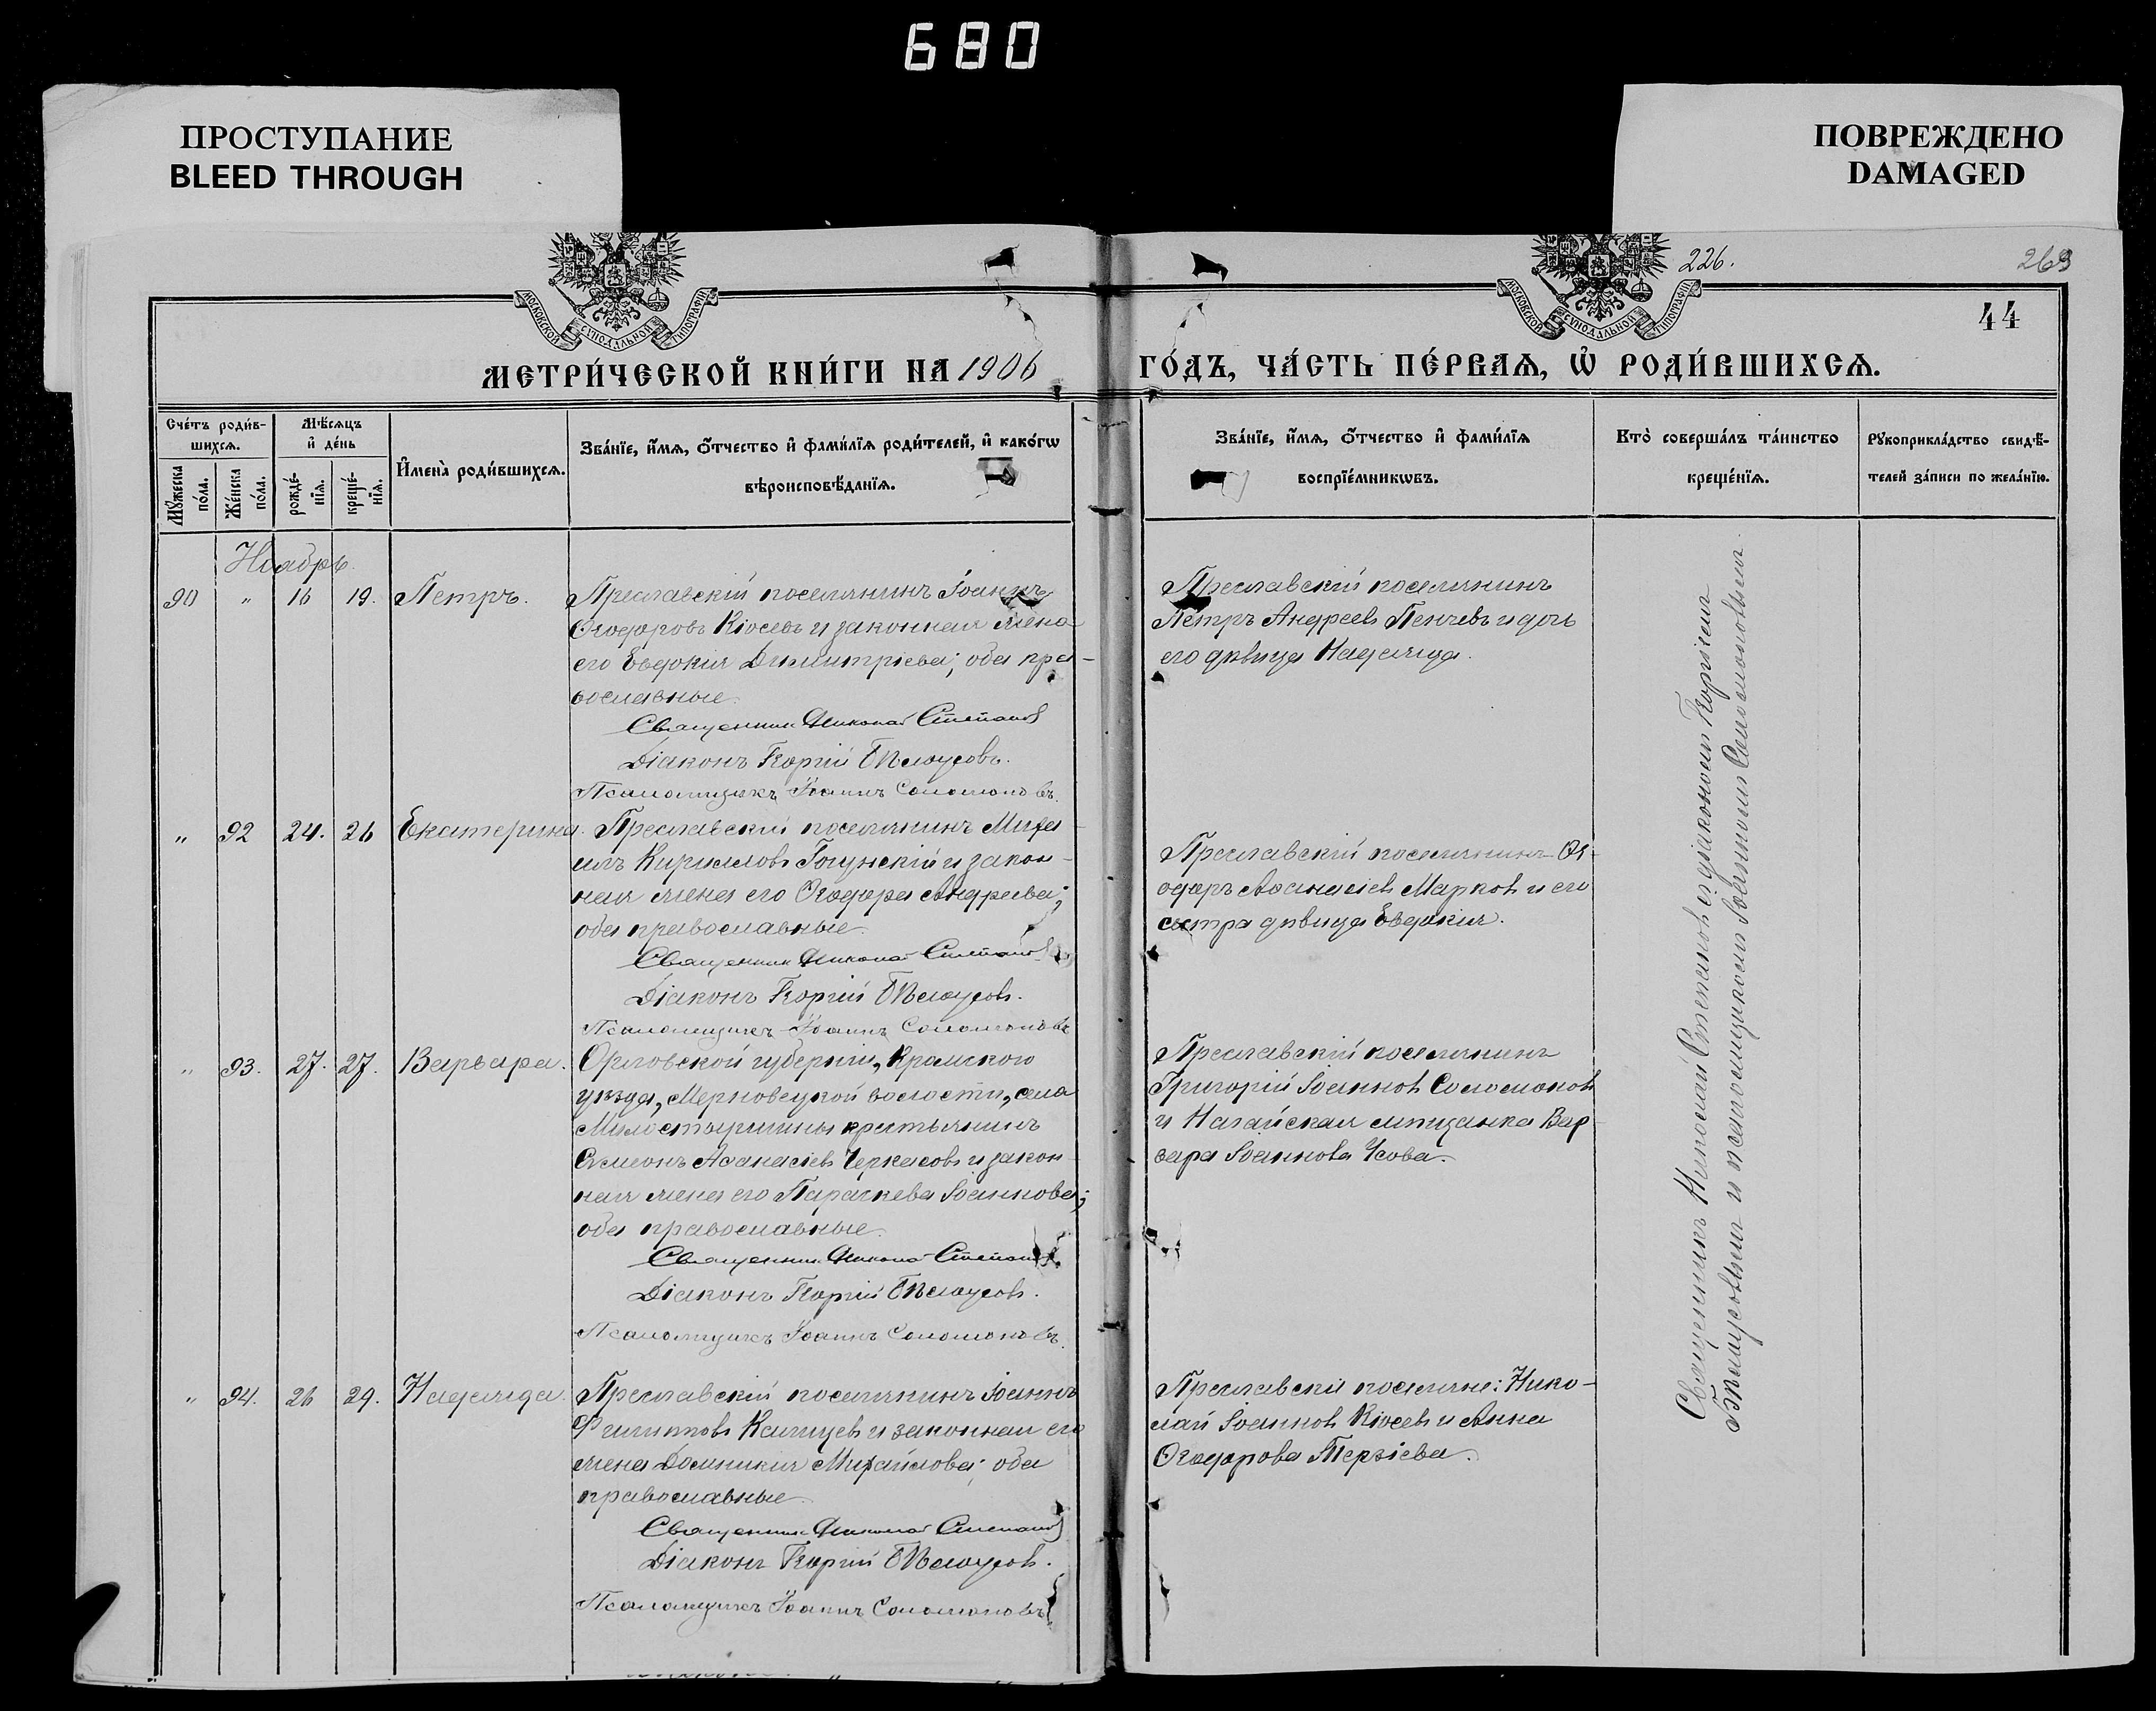 680
ПРОСТУПАНИЕ
BLEED THROUGH
ПОВРЕЖДЕНО
DAMAGED
226.
269
44
МОСКОВСКОЙ СѴНОДАЛЬНОЙ ТИПОГРАФІИ
МОСКОВСКОЙ СѴНОДАЛЬНОЙ ТИПОГРАФІИ
МЕТРИ́ЧЕСКОЙ КНИ́ГИ НА 1906 ГО́ДЪ, ЧА́СТЬ ПЕ́РВАѦ, Ѡ҆ РОДИ́ВШИХСѦ.
Сче́тъ роди́в-
шихсѧ.
Мꙋ́жеска
по́ла.
Же́нска
по́ла.
Мѣ́сѧцъ
и҆ де́нь
рожде́-
нїѧ.
креще́-
нїѧ.
И҆мена̀ роди́вшихсѧ.
Зва́нїе, и҆́мѧ, ѻ҆́тчество и҆ фами́лїѧ роди́телей, и҆ како́гѡ
вѣроисповѣ́данїѧ.
Зва́нїе, и҆́мѧ, ѻ҆́тчество и҆ фами́лїѧ
воспрїе́мникѡвъ.
Кто̀ соверша́лъ та́инство
креще́нїѧ.
Рꙋкоприкла́дство свидѣ́-
телей за́писи по жела́нїю.
Ноябрь.
90 " 16 19. Петръ.
Преславскій поселянинъ Іоаннъ
Ѳеодоровъ Кіосевъ и законная жена
его Евдокія Димитріева; оба пра-
вославные.
Священникъ Николай Степановъ
Діаконъ Георгій Бѣлоусовъ.
Псаломщикъ Іоаннъ Соломоновъ.
Преславскій поселянинъ
Петръ Андреевъ Пенчевъ и дочь
его дѣвица Надежда.
" 92 24. 26 Екатерина.
Преславскій поселянинъ Миха-
илъ Кирилловъ Гогунскій и закон-
ная жена его Ѳеодора Андреева;
оба православные.
Священникъ Николай Степановъ
Діаконъ Георгій Бѣлоусовъ.
Псаломщикъ Іоаннъ Соломоновъ
Преславскій поселянинъ Ѳе-
одоръ Аѳанасіевъ Марковъ и его
сестра дѣвица Евдокія.
" 93. 27. 27. Варвара.
Орловской губерніи, Кромского
уѣзда, Мерновецкой волости, села
крестьянинъ
Симеонъ Аѳанасіевъ Черкасовъ и закон-
ная жена его Параскева Іоаннова;
оба православные.
Священникъ Николай Степановъ.
Діаконъ Георгій Бѣлоусовъ.
Псаломщикъ Іоаннъ Соломоновъ.
Преславскій поселянинъ
Григорій Іоанновъ Соломоновъ
и Ногайская мѣщанка Вар-
вара Іоаннова Усова.
" 94. 26 29. Надежда.
Преславскій поселянинъ Іоаннъ
Филипповъ Калицевъ и законная его
жена Домникія Михайлова; оба
православные.
Священникъ Николай Степановъ
Діаконъ Георгій Бѣлоусовъ.
Псаломщикъ Іоаннъ Соломоновъ
Преславскіе поселяне: Нико-
лай Іоанновъ Кіосевъ и Анна
Ѳеодорова Терзіева.
Священникъ Николай Степановъ съ діакономъ Георгіемъ
Бѣлоусовымъ и псаломщикомъ Іоанномъ Соломоновымъ.